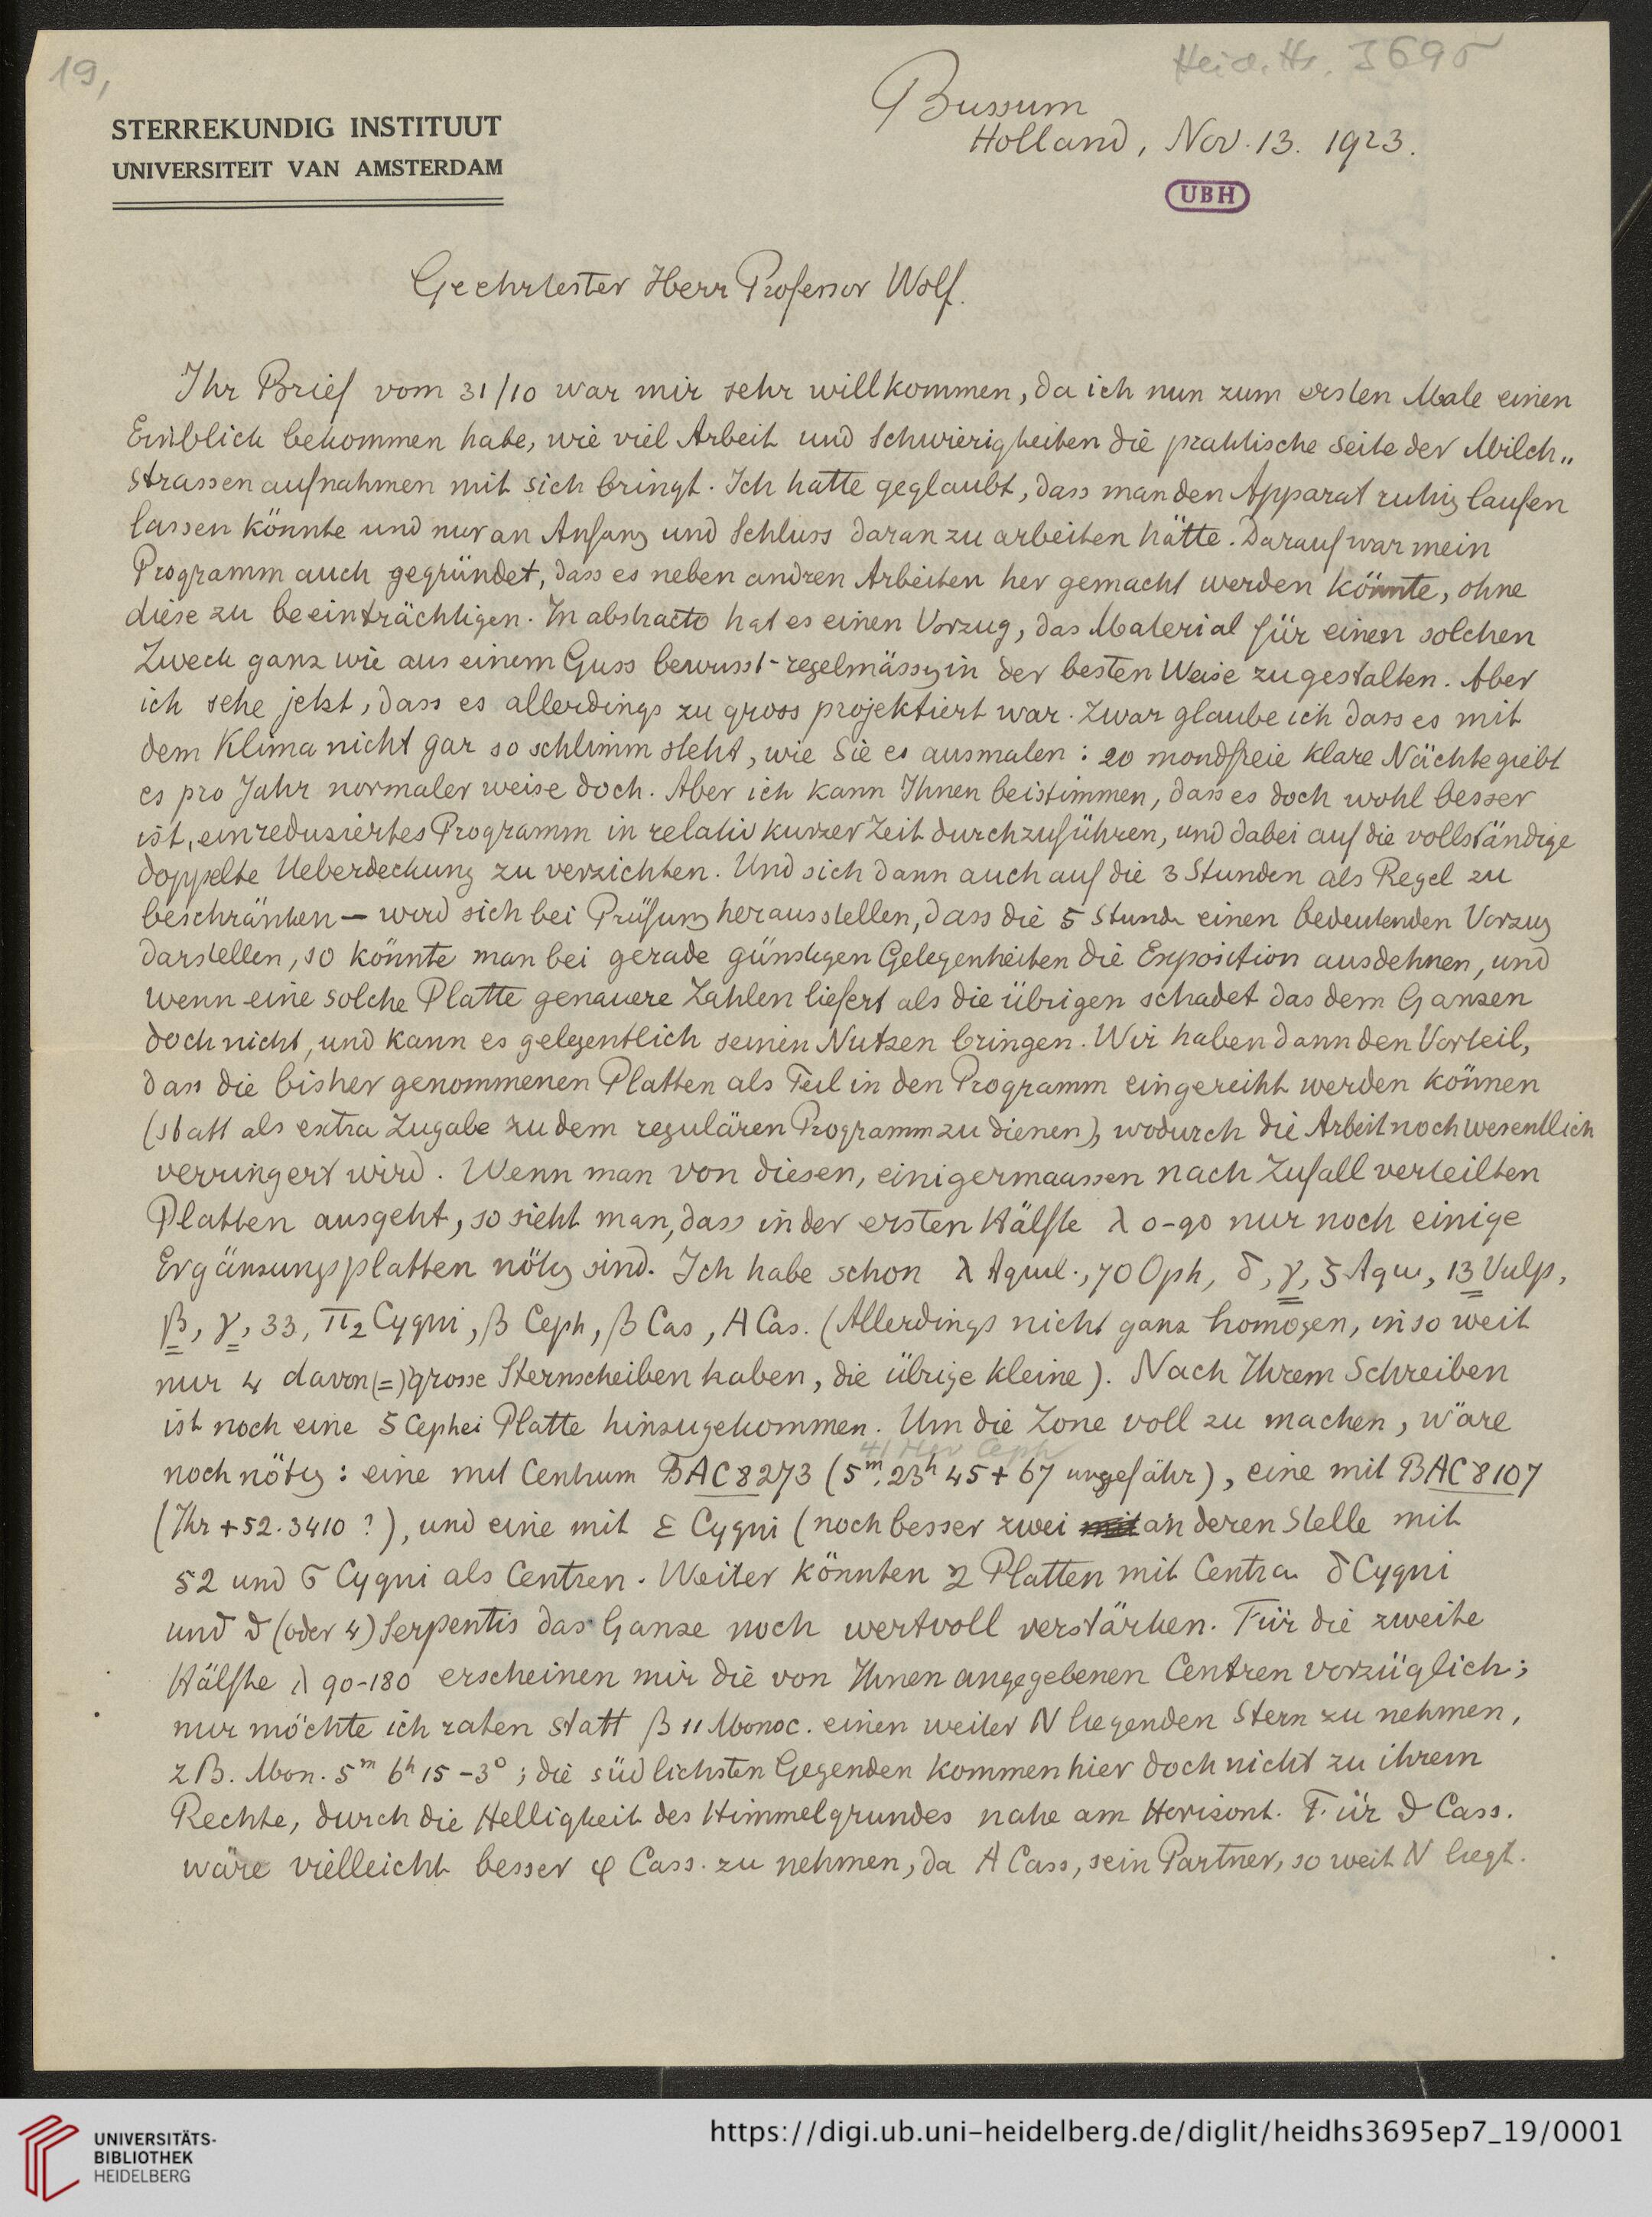 19,
Heid. Hs. 3695
STERREKUNDIG INSTITUUT
UNIVERSITEIT VAN AMSTERDAM
Bussum
Holland, Nov. 13. 1923.
UBH
Geehrtester Herr Professor Wolf.
Ihr Brief vom 31/10 war mir sehr willkommen, da ich nun zum ersten Male einen
Einblick bekommen habe, wie viel Arbeit und Schwierigkeiten die praktische Seite der Milch„
strassenaufnahmen mit sich bringt. Ich hatte geglaubt, dass man den Apparat ruhig laufen
lassen könnte und nur an Anfang und Schluss daran zu arbeiten hätte. Darauf war mein
Programm auch gegründet, dass es neben andren Arbeiten her gemacht werden könnte, ohne
diese zu beeinträchtigen. In abstracto hat es einen Vorzug, das Material für einen solchen
Zweck ganz wie aus einem Guss bewusst-regelmässig in der besten Weise zu gestalten. Aber
ich sehe jetzt, dass es allerdings zu gross projektiert war. Zwar glaube ich dass es mit
dem Klima nicht gar so schlimm steht, wie Sie es ausmalen: 20 mondfreie klare Nächte giebt
es pro Jahr normaler weise doch. Aber ich kann Ihnen beistimmen, dass es doch wohl besser
ist, ein reduziertes Programm in relativ kurzer Zeit durchzuführen, und dabei auf die vollständige
doppelte Ueberdeckung zu verzichten. Und sich dann auch auf die 3 Stunden als Regel zu
beschränken — wird sich bei Prüfung herausstellen, dass die 5 Stunden einen bedeutenden Vorzug
darstellen, so könnte man bei gerade günstigen Gelegenheiten die Exposition ausdehnen, und
wenn eine solche Platte genauere Zahlen liefert als die übrigen schadet das dem Ganzen
doch nicht, und kann es gelegentlich seinen Nutzen bringen. Wir haben dann den Vorteil,
dass die bisher genommenen Platten als Teil in den Programm eingereiht werden können
(statt als extra Zugabe zu dem regulären Programm zu dienen), wodurch die Arbeit noch wesentlich
verringert wird. Wenn man von diesen, einigermaassen nach Zufall verteilten
Platten ausgeht, so sieht man, dass in der ersten Hälfte λ 0-90 nur noch einige
Ergänzungsplatten nötig sind. Ich habe schon λ Aquil., 70 Oph, δ, γ, ζ Aqu, 13 Vulp,
β, γ, 33, π2 Cygni, β Ceph, β Cas, A Cas. (Allerdings nicht ganz homogen, in so weit
nur 4 davon (=) grosse Sternscheiben haben, die übrige kleine). Nach Ihrem Schreiben
ist noch eine ζ Cephei Platte hinzugekommen. Um die Zone voll zu machen, wäre
noch nötig: eine mit Centrum BAC 8273 (5m, 23h 45 + 67 ungefähr), eine mit BAC 8107
(Ihr +52.3410?), und eine mit ε Cygni (noch besser zwei an deren Stelle mit
52 und σ Cygni als Centren. Weiter könnten 2 Platten mit Centra δ Cygni
und d (oder 4) Serpentis das Ganze noch wertvoll verstärken. Für die zweite
Hälfte λ 90-180 erscheinen mir die von Ihnen angegebenen Centren vorzüglich;
nur möchte ich raten statt β 11 Monoc. einen weiter N liegenden Stern zu nehmen,
z B. Mon. 5m 6h 15 -3°; die südlichsten Gegenden kommen hier doch nicht zu ihrem
Rechte, durch die Helligkeit des Himmelgrundes nahe am Horizont. Für ϑ Cass.
wäre vielleicht besser φ Cass. zu nehmen, da A Cass, sein Partner, so weit N liegt.
UNIVERSITÄTS-
BIBLIOTHEK
HEIDELBERG
https://digi.ub.uni-heidelberg.de/diglit/heidhs3695ep7_19/0001